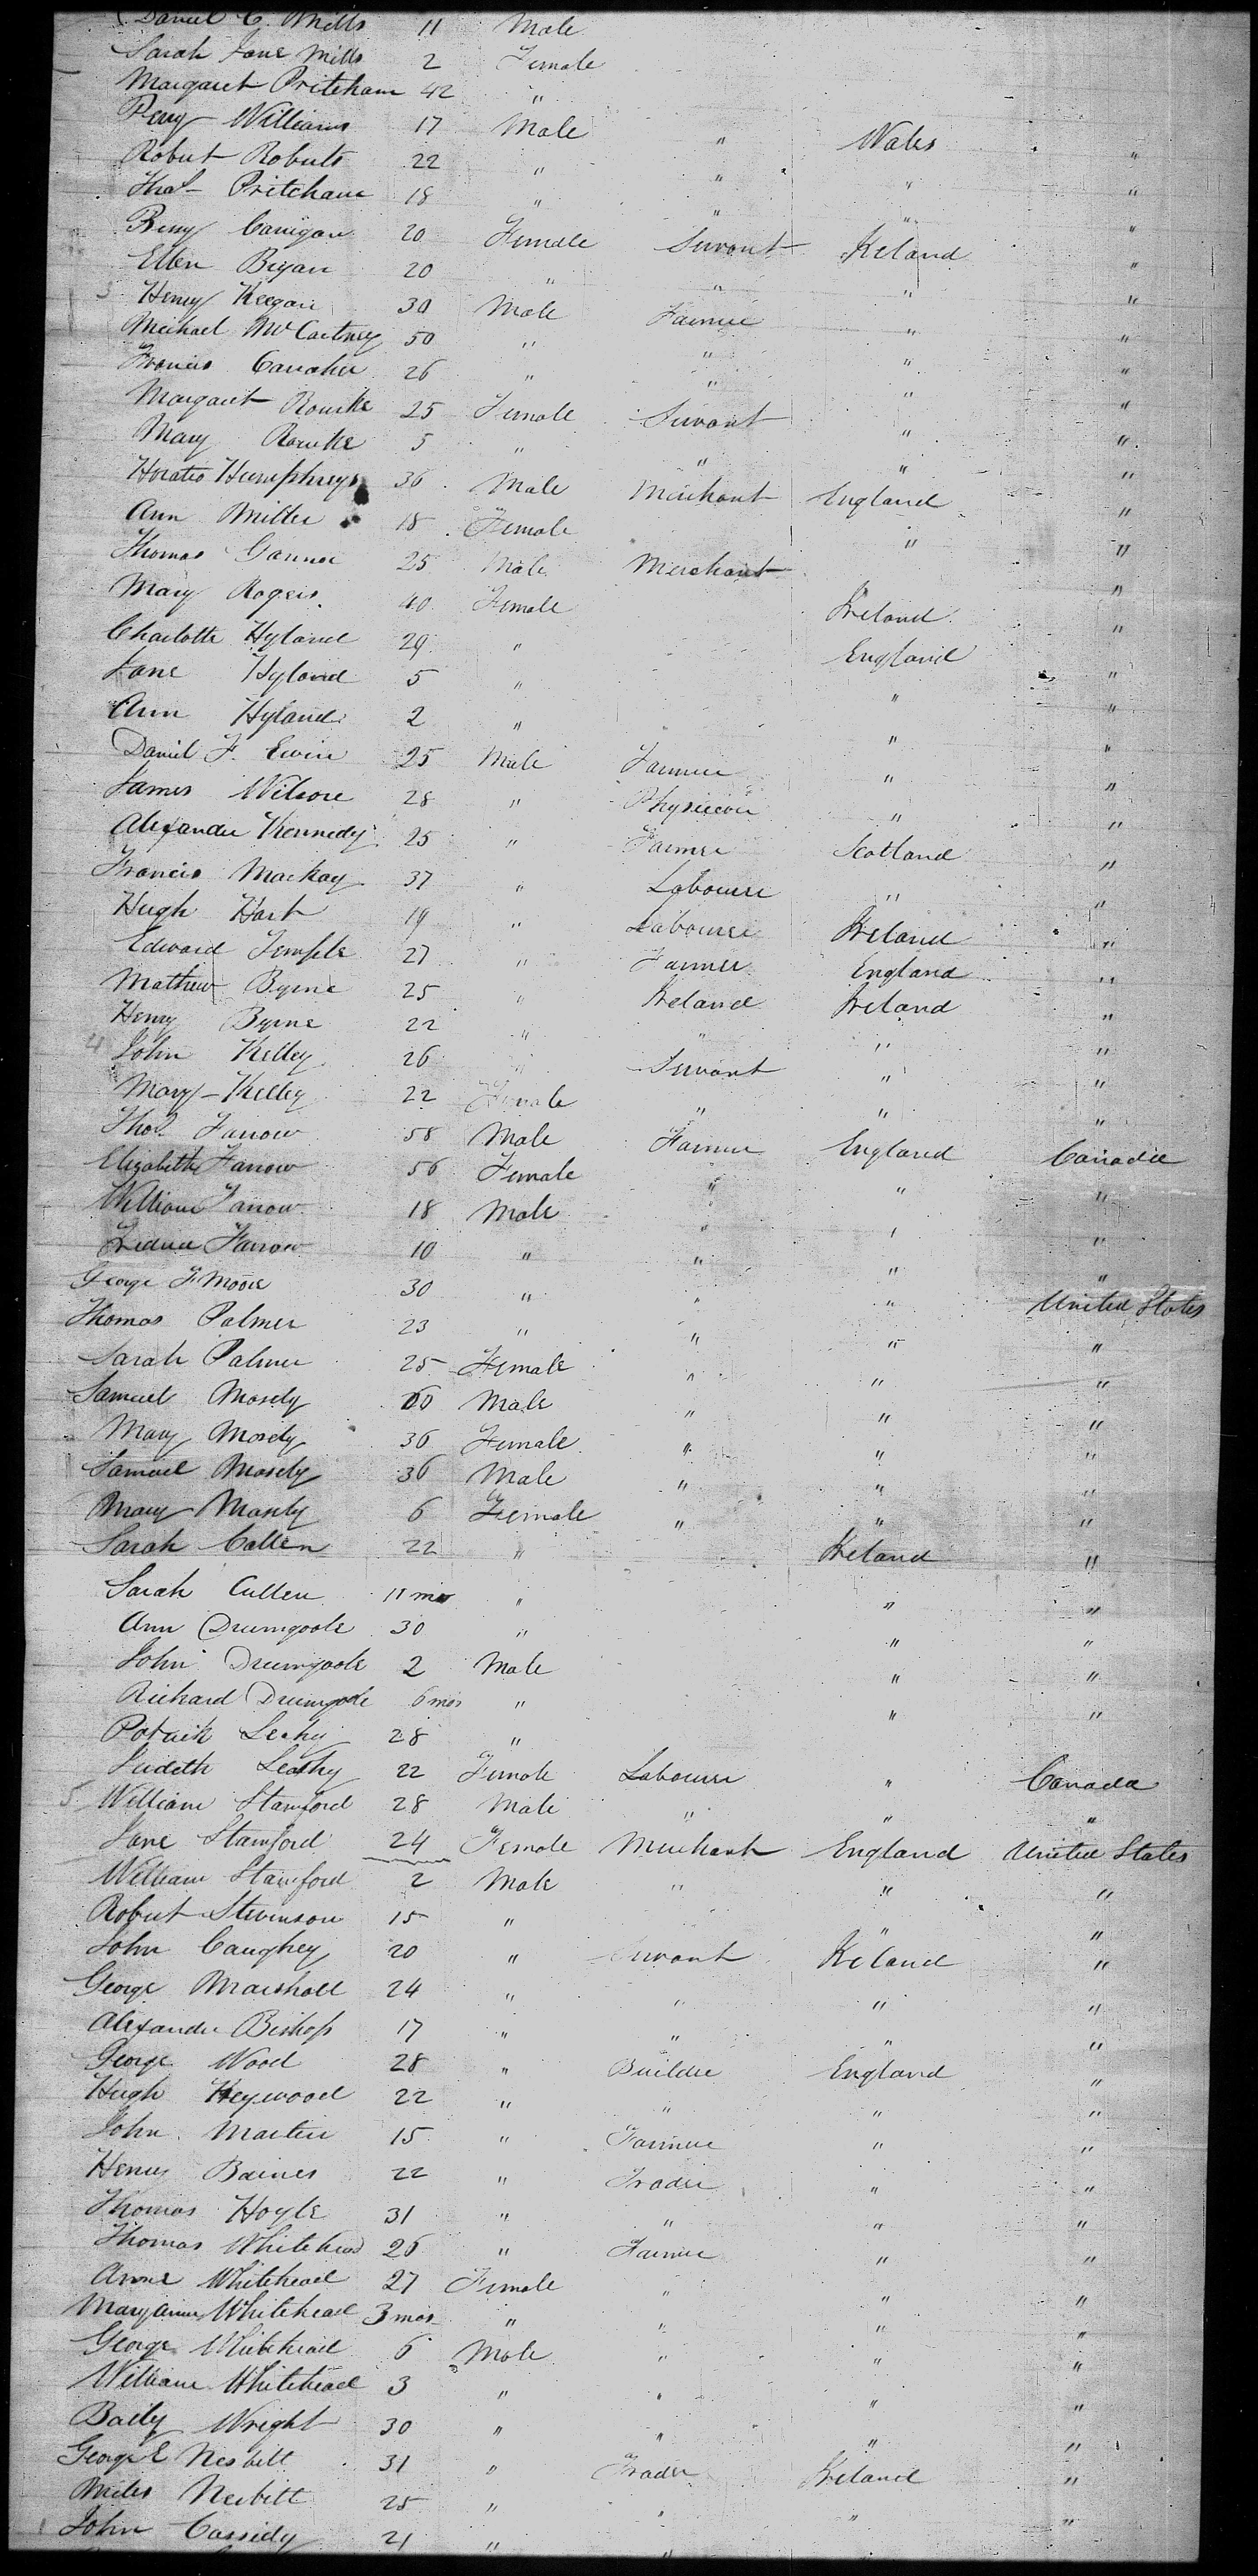 Daniel C. Mills 11 Male
Sarah Jane Mills 2 Female
Margaret Pritcham 42 "
Perry Williams 17 Male " Wales "
Robert Roberts 22 " " " "
Thos Pritcham 18 " " " "
Bessy Carrigan 20 Female Servant Ireland "
Ellen Bryan 20 " " " "
3 Henry Keegan 30 Male Farmer " "
Michael McCartney 50 " " " "
Francis Carraher 26 " " " "
Margaret Rourke 25 Female Servant " "
Mary Rourke 5 " " " "
Horatio Humphreys 36 Male Merchant England "
Ann Miller 18 Female " "
Thomas Gannor 25 Male Merchant "
Mary Rogers 40 Female Ireland "
Charlotte Hyland 29 " England "
Jane Hyland 5 " " "
Ann Hyland 2 " " "
Daniel F. Ewin 25 Male Farmer " "
James Wilson 28 " Physician " "
Alexander Kennedy 25 " Farmer Scotland "
Francis Mackay 37 " Labourer " "
Hugh Hart 19 " Labourer Ireland "
Edward Temple 27 " Farmer England "
Mathew Byrne 25 " Ireland Ireland "
Henry Byrne 22 " " " "
4 John Kelley 26 " Servant " "
Mary Kelley 22 Female " " "
Thos Farrow 58 Male Farmer England Canada
Elizabeth Farrow 56 Female " " "
William Farrow 18 Male " " "
Farrow 10 " " " "
George F Moore 30 " " " United States
Thomas Palmer 23 " " " "
Sarah Palmer 25 Female " " "
Samuel Mosely 60 Male " " "
Mary Mosely 36 Female " " "
Samuel Mosely 36 Male " " "
Mary Mosely 6 Female " " "
Sarah Cullen 22 " Ireland "
Sarah Cullen 11 mos " " "
Ann Drumgoole 30 " " "
John Drumgoole 2 Male " "
Richard Drumgoole 6 mos " " "
Patrick Leahy 28 "
Judith Leahy 22 Female Labourer " Canada
5 William Stamford 28 Male " " "
Jane Stamford 24 Female Merchant England United States
William Stamford 2 Male " " "
Robert Stevenson 15 " " "
John Caughey 20 " Servant Ireland "
George Marshall 24 " " " "
Alexander Bishop 17 " " " "
George Wood 28 " Builder England "
Hugh Heywood 22 " " " "
John Martin 15 " Farmer " "
Henry Baines 22 " Trader " "
Thomas Hoyle 31 " " " "
Thomas Whitehead 26 " Farmer " "
Anne Whitehead 27 Female " " "
Mary Anne Whitehead 3 mos " " " "
George Whitehead 6 Male " " "
William Whitehead 3 " " " "
Baily Wright 30 " " " "
George E Nesbitt 31 " Trader Ireland "
Miles Nesbitt 25 " " " "
John Cassidy 21 "